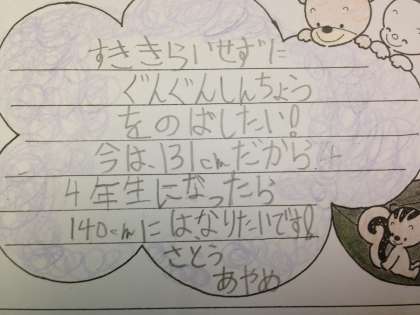 すききらいせずに
ぐんぐんしんちょう
をのばしたい!
今は、131cmだから
4年生になったら
140cmにはなりたいです!
さとう
あやめ